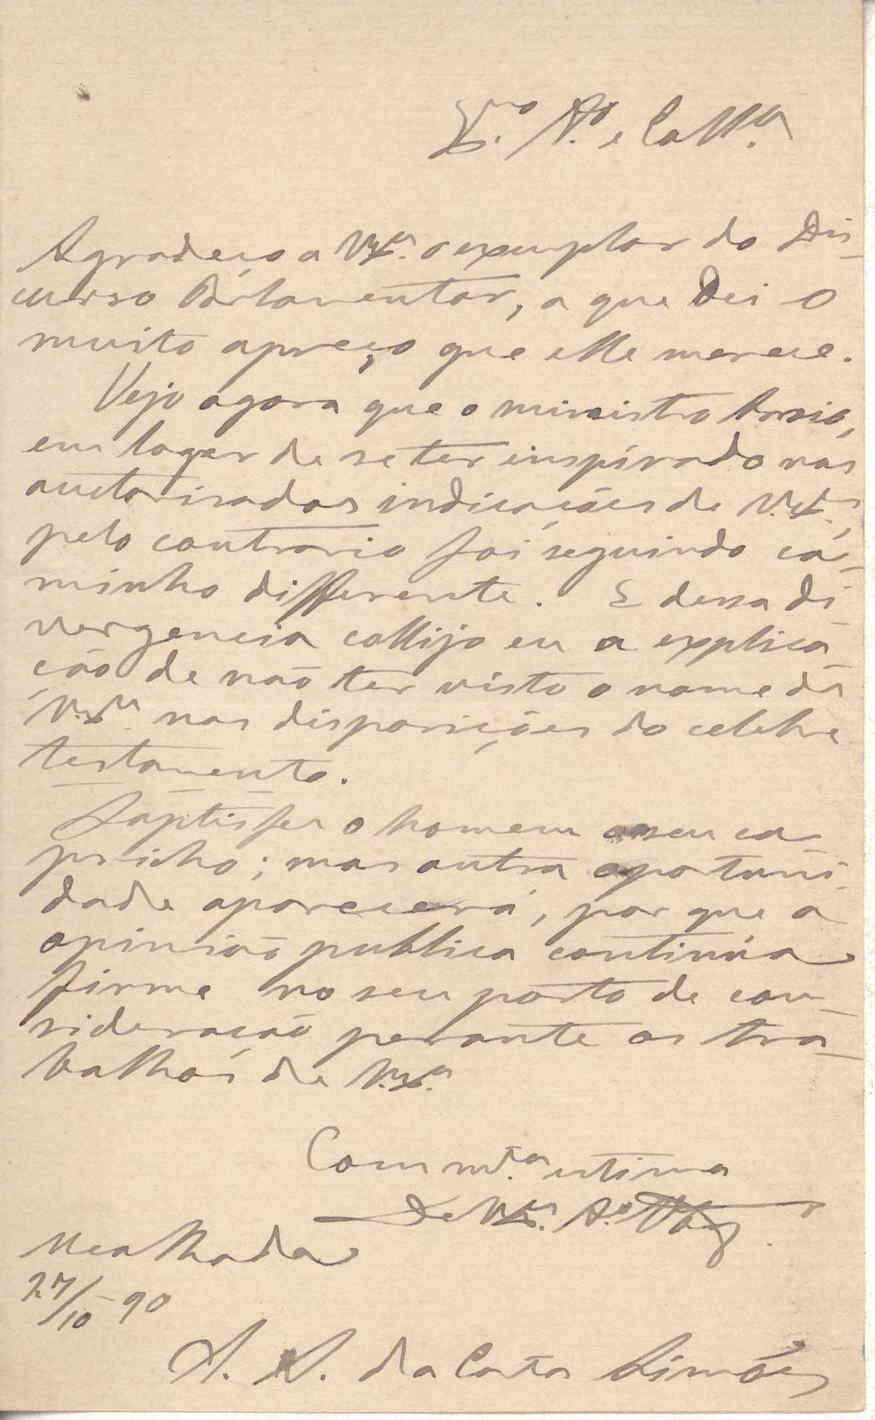 Ex.mo A.o e Coll.a
Agradeço a V.Ex.a o exemplar do Dis-
curso Parlamentar, a que dei o
muito apreço que elle merece.
Vejo agora que o ministro
em logar de se ter inspirado nas
auctorisadas indicações de V.Ex.a,
pelo contrario foi seguindo ca-
minho differente. E dessa di
vergencia collijo eu a explica
ção de não ter visto o nome de
V.Ex.a nas disposições do celebre
testamento.
Satisfez o homem o seu ca
pricho; mas outra oportuni-
dade aparecerá, por que a
opinião publica continúa
firme no seu posto de con-
sideração perante os tra-
balhos de V.Ex.a
Com m.ta estima
De V.Ex.a A.o
Mealhada
27/10 90
A. A. da Costa Simões